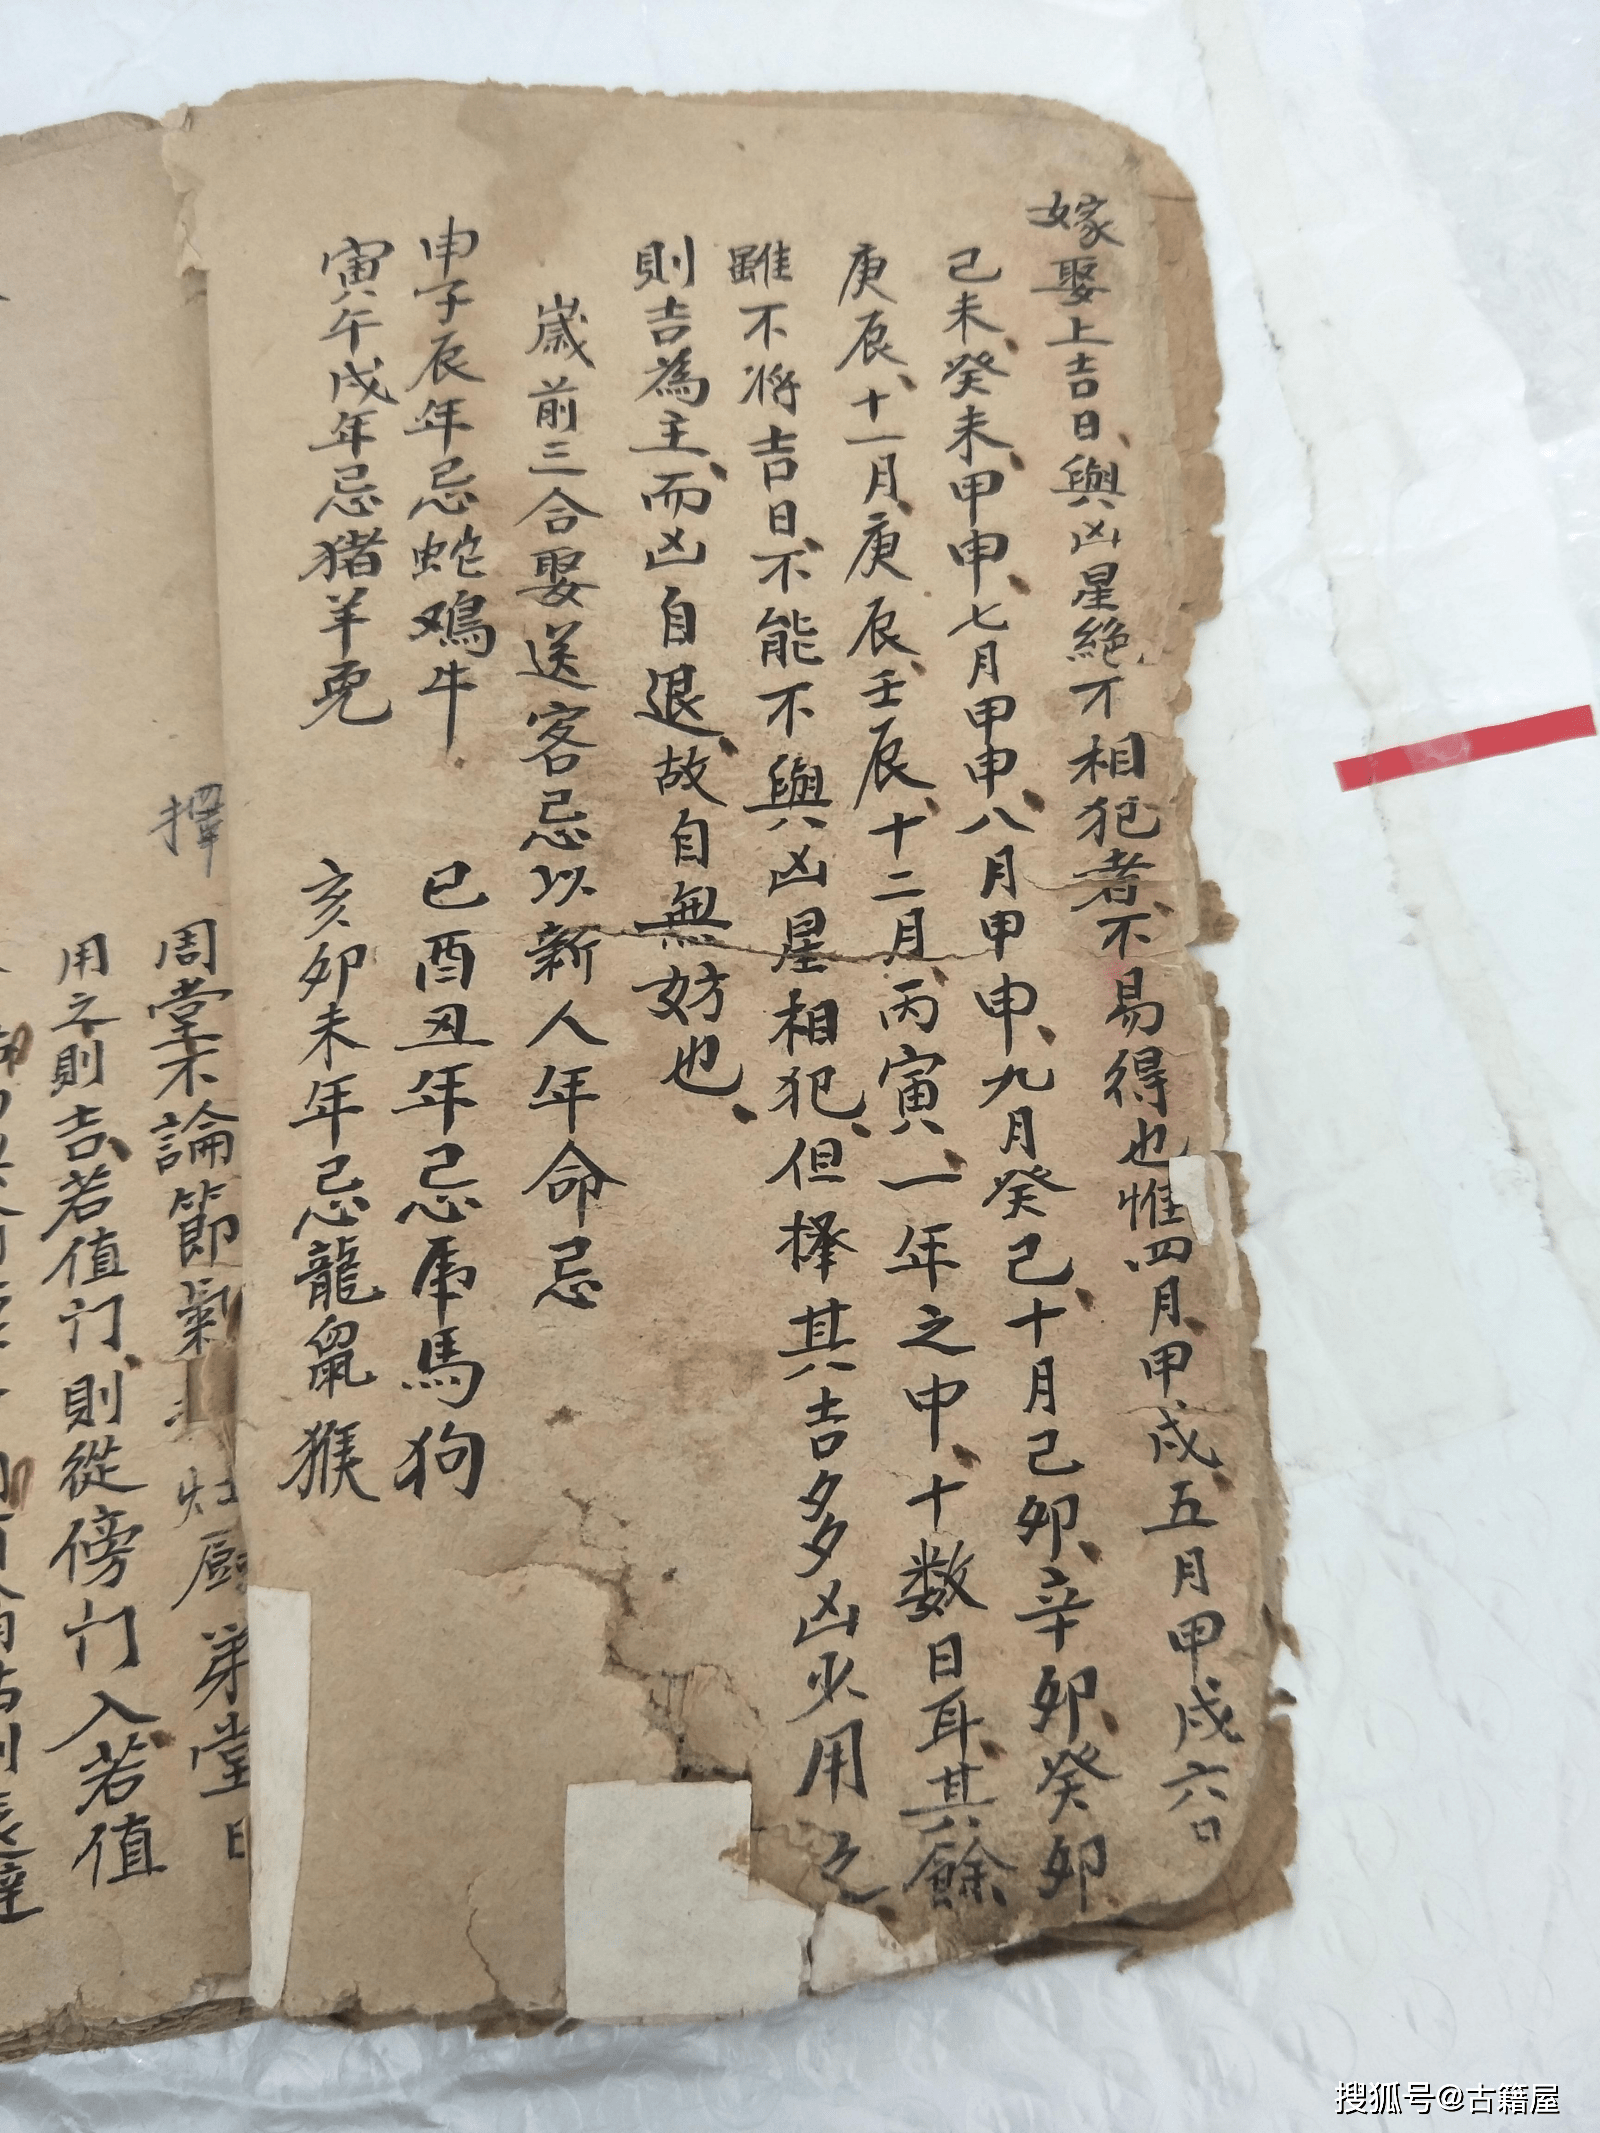 嫁娶上吉日、與凶星絶不相犯者、不易得也惟四月、甲戌五月甲戌六口
己未、癸未、甲申、七月甲申、八月甲申、九月癸已、十月己卯、辛卯、癸卯
庚辰、十一月、庚辰、壬辰、十二月、丙寅、一年之中、十数日耳、其餘
雖不将吉日、不能不與凶星相犯、但擇其吉多凶少用之
則吉為主、而凶自退、故自無妨也、
歲前三合娶送客忌以新人年命忌
申子辰年忌蛇鷄牛 巳酉丑年忌虎馬狗
寅午戌年忌猪羊兎 亥卯未年忌龍鼠猴
擇
周堂不論節氣 灶厨弟堂日
用之則吉、若值门、則從傍门入若值
搜狐号@古籍屋